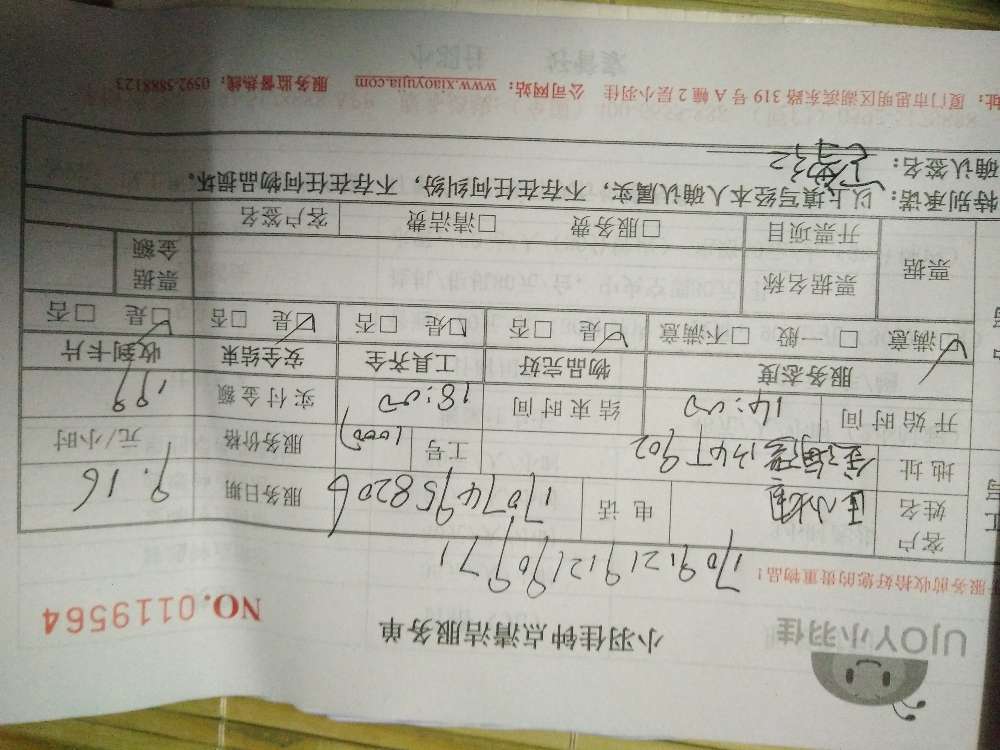 UJOY小羽佳
小羽佳钟点清洁服务单
NO.0119564
服务前收拾好您的贵重物品！
客户姓名 电话 服务日期 9.16
地址 工号 服务价格 元/小时
开始时间 14:00 结束时间 18:00 实付金额 199
服务态度 物品完好 工具齐全 安全结束 收到卡片
☑满意 □一般 □不满意 ☑是 □否 ☑是 □否 ☑是 □否 ☑是 □否
票据 票据名称 票据金额
开票项目 □服务费 □清洁费 客户签名
特别承诺：以上填写经本人确认属实，不存在任何纠纷，不存在任何物品损坏。
确认签名：
址：厦门市思明区湖滨东路319号A幢2层小羽佳 公司网站：www.xiaoyujia.com 服务监督热线：0592-5888123